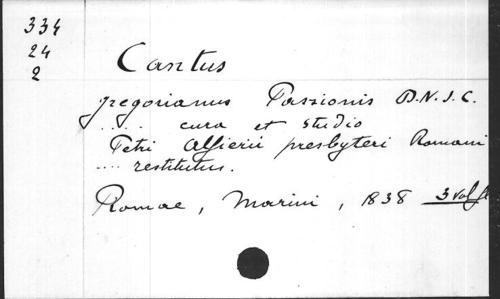 334
24
2
Cantus
gregorianus Passionis D.N.J.C.
..... cura et studio
Petri Alfierii presbyteri Romani
.... restitutus.
Romae, Marini, 1838 3 vol fl